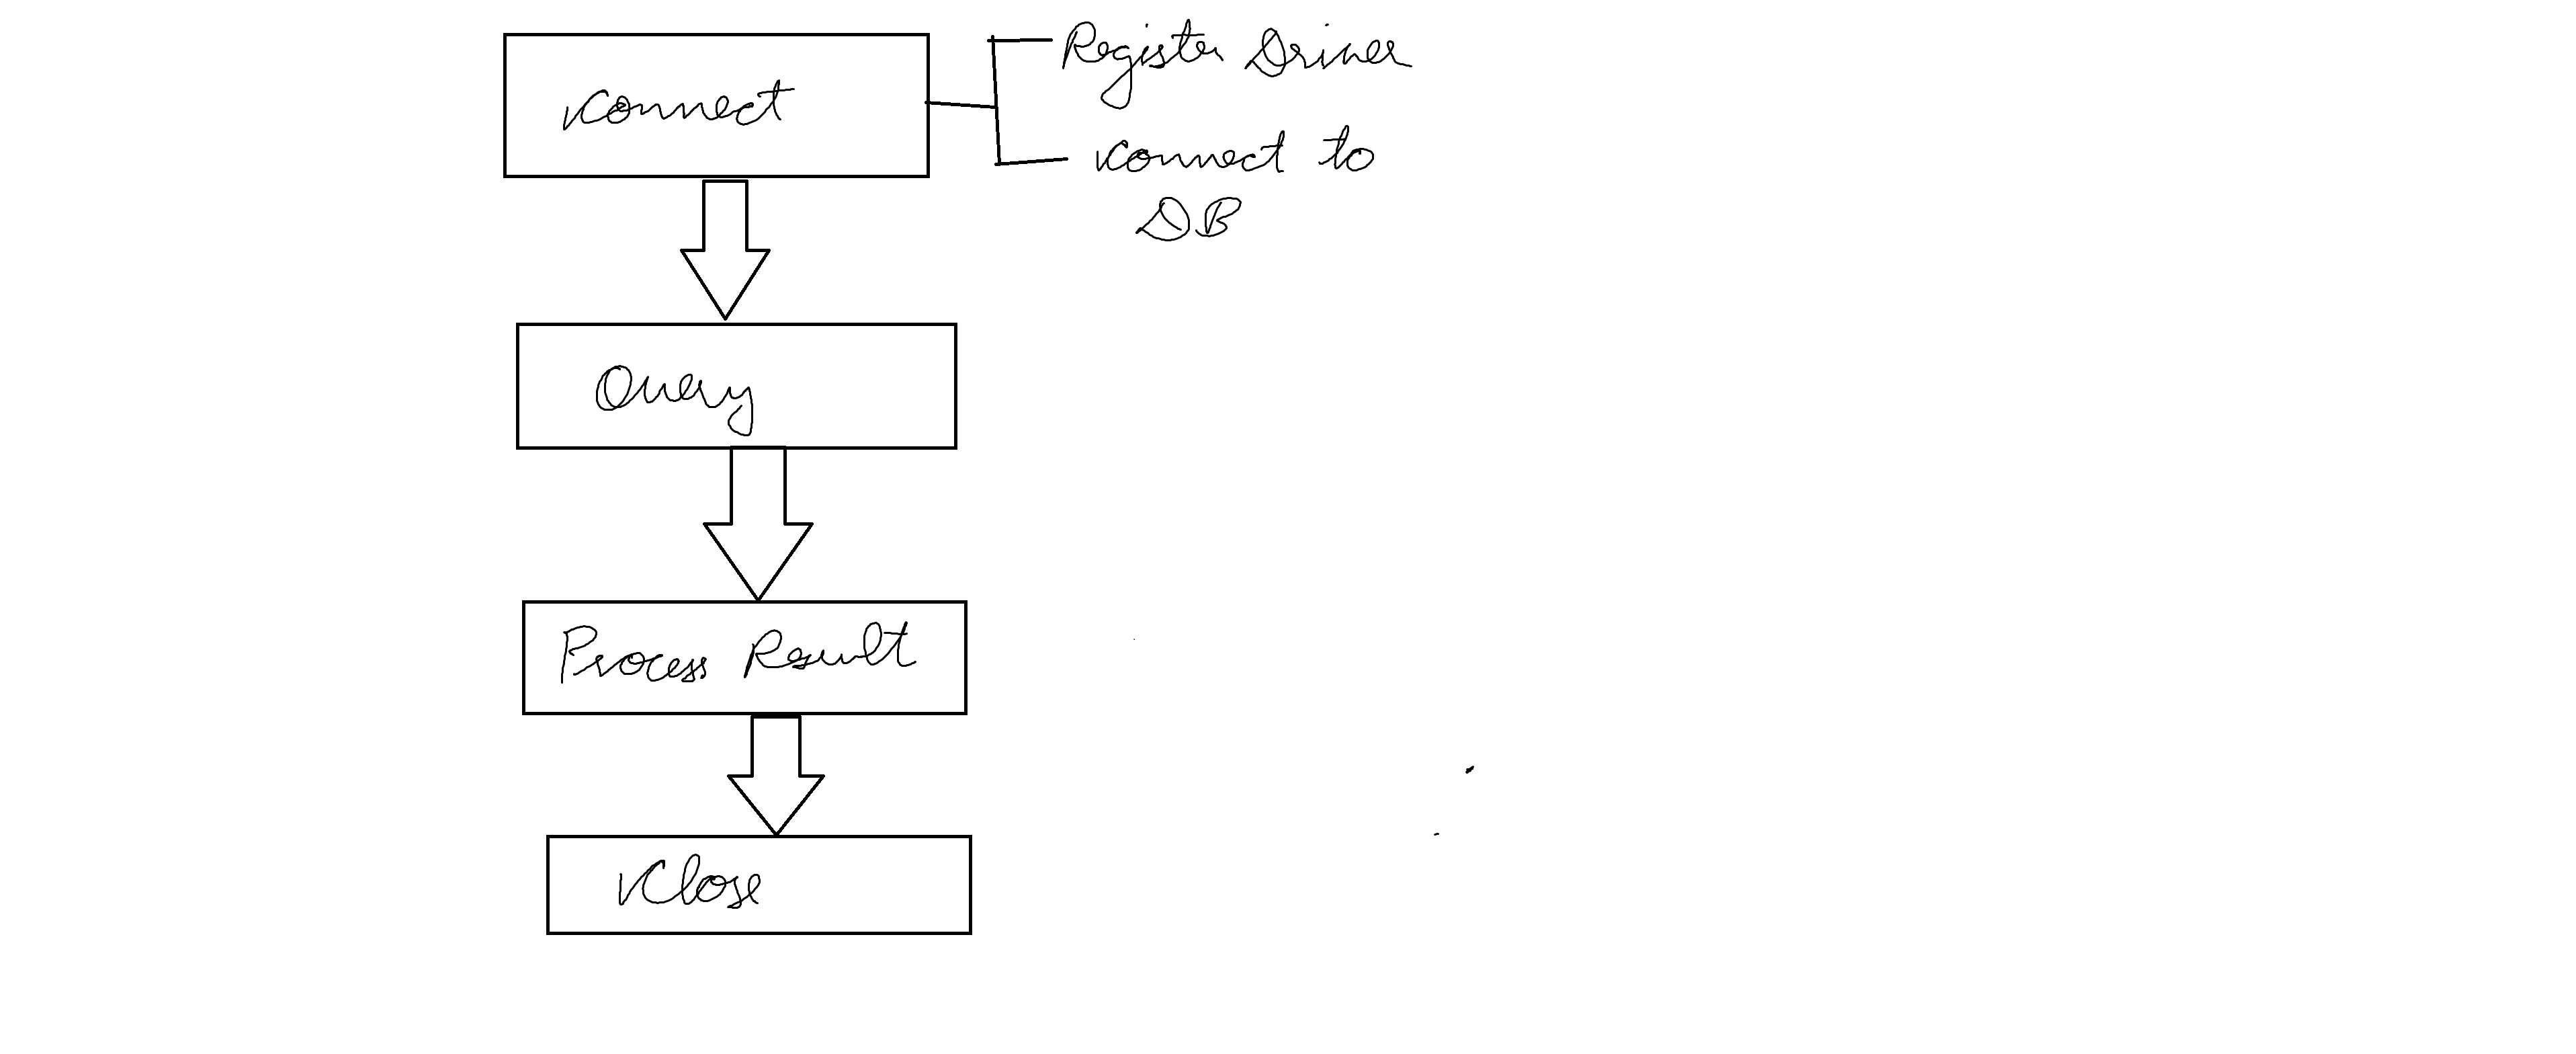 Connect
Register Driver
Connect to
DB
Query
Process Result
Close